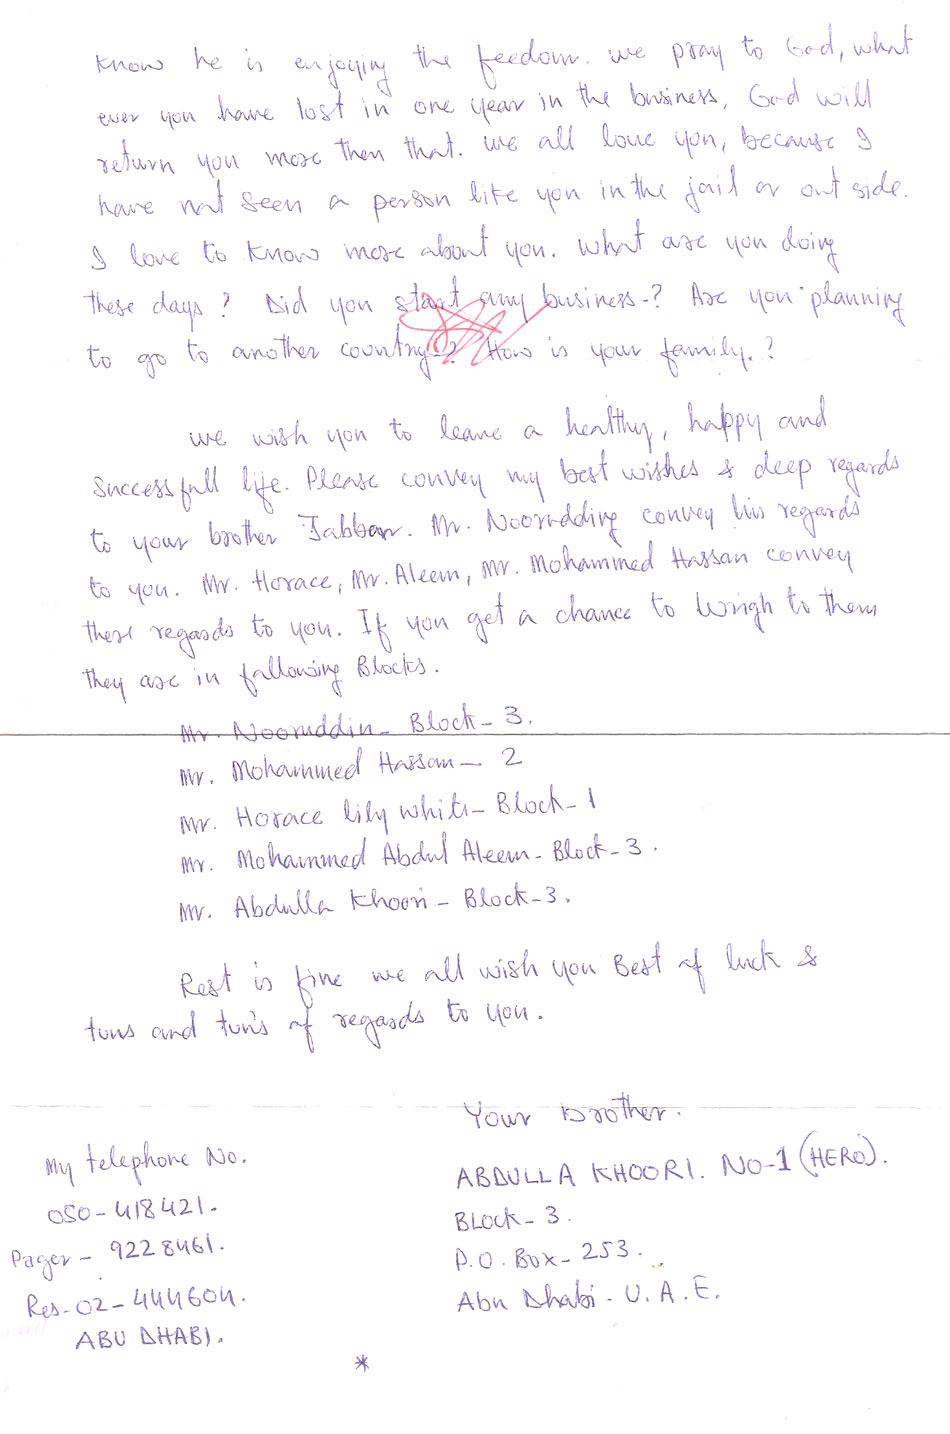 know he is enjoying the feedom. we pray to God, what
ever you have lost in one year in the business, God will
return you more then that. we all love you, because I
have not seen a person like you in the jail or out side.
I love to know more about you. what are you doing
these days? Did you start any business-? Are you planning
to go to another country-? How is your family.?
we wish you to leave a healthy, happy and
successfull life. Please convey my best wishes & deep regards
to your brother Jabbar. Mr. Noorudding convey his regards
to you. Mr. Horace, Mr. Aleem, Mr. Mohammed Hassan convey
there regards to you. If you get a chance to Wrigh to them
they are in fallowing Blocks.
Mr. Nooruddin- Block- 3.
Mr. Mohammed Hassan- 2
Mr. Horace lily white- Block- 1
Mr. Mohammed Abdul Aleem- Block- 3.
Mr. Abdulla Khoori- Block-3.
Rest is fine we all wish you Best of luck &
tons and ton's of regards to you.
Your Brother.
ABDULLA KHOORI. NO-1 (HERO).
BLOCK- 3.
P.O. Box- 253.
Abu Dhabi- U.A.E.
My telephone No.
050-418421.
Pager- 9228461.
Res-02-444604.
ABU DHABI.
*